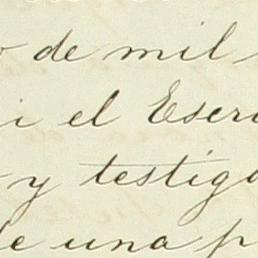 o de mil
i el Escri
y testigo
de una p